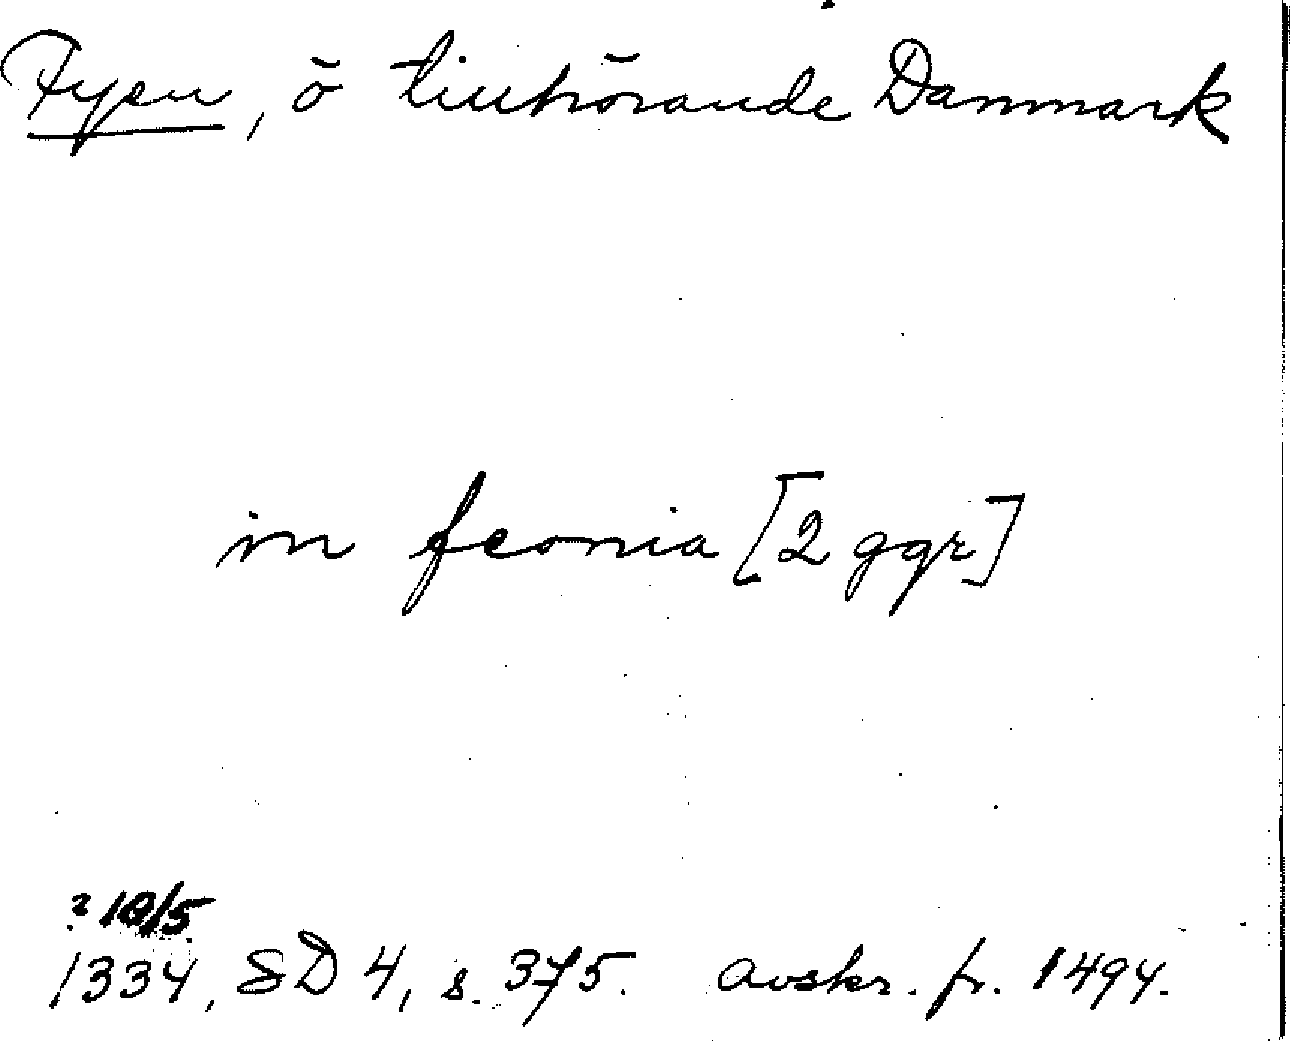 Fyen, ö tillhörande Danmark
in feonia [2 ggr]
? 10/5
1334, SD 4, s. 375. avskr. fr. 1494.